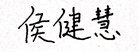 侯健慧